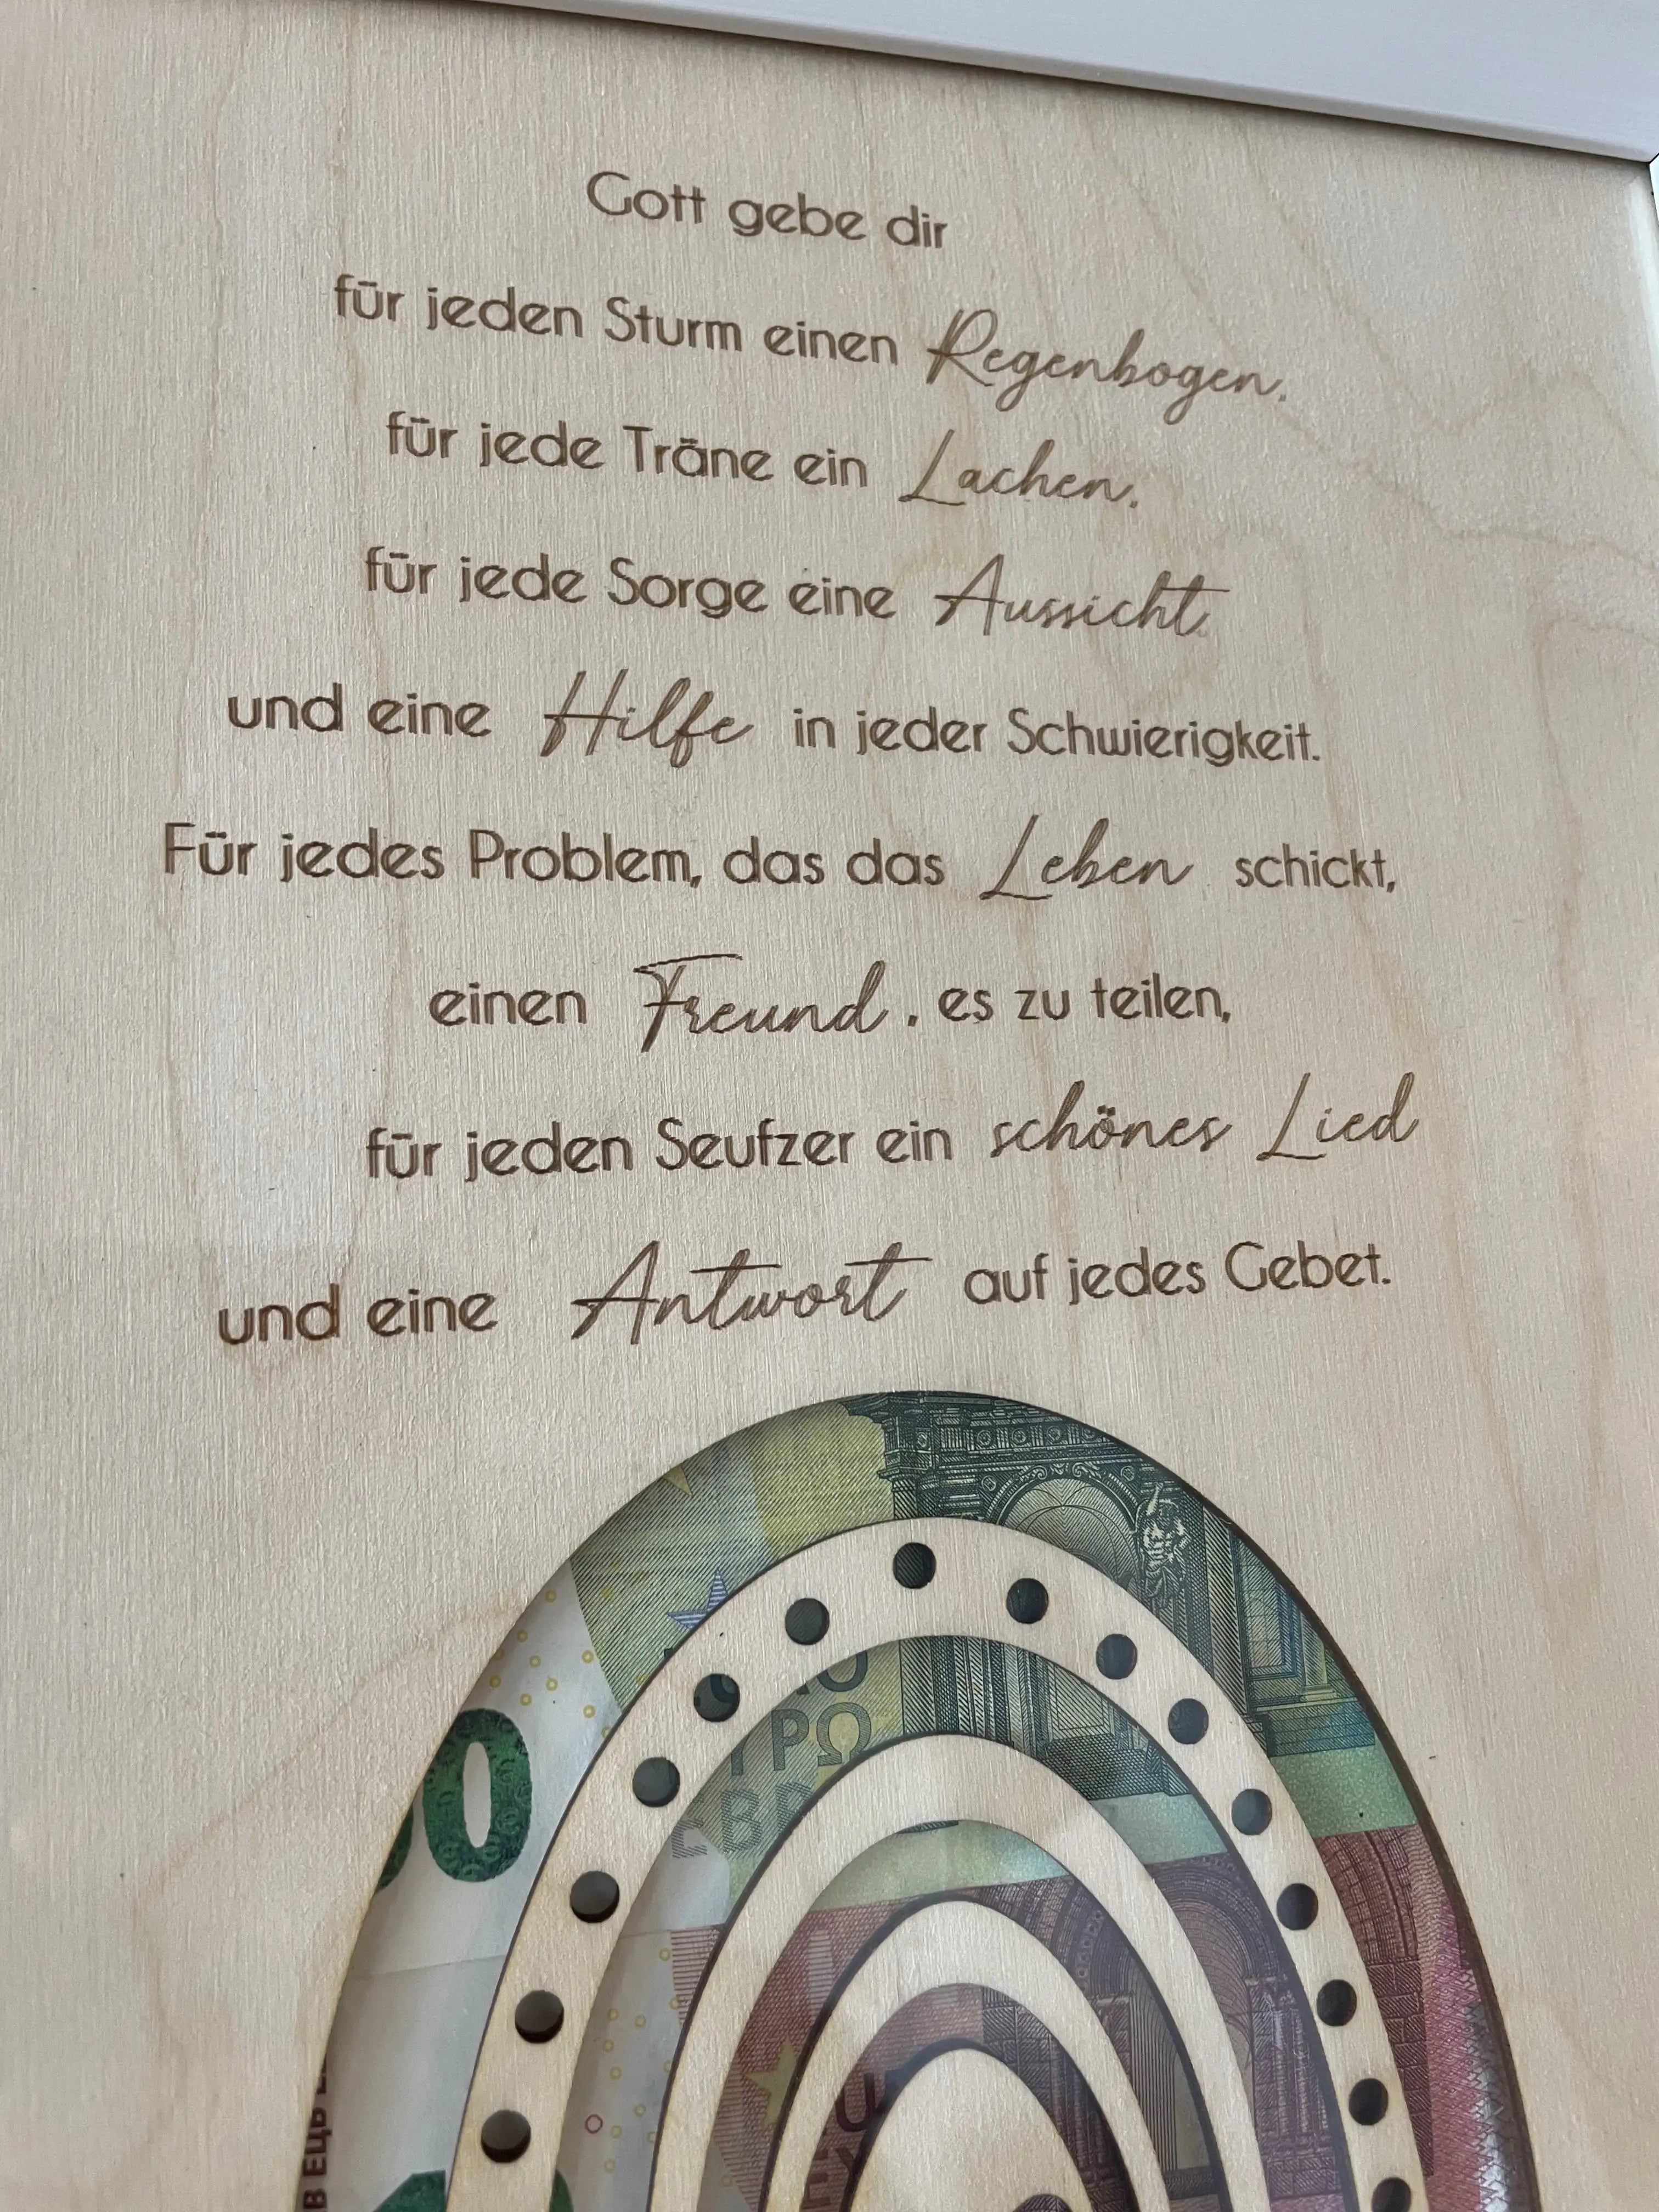 Gott gebe dir
für jeden Sturm einen Regenbogen,
für jede Träne ein Lachen,
für jede Sorge eine Aussicht
und eine Hilfe in jeder Schwierigkeit.
Für jedes Problem, das das Leben schickt,
einen Freund, es zu teilen,
für jeden Seufzer ein schönes Lied
und eine Antwort auf jedes Gebet.
0
ΡΩ